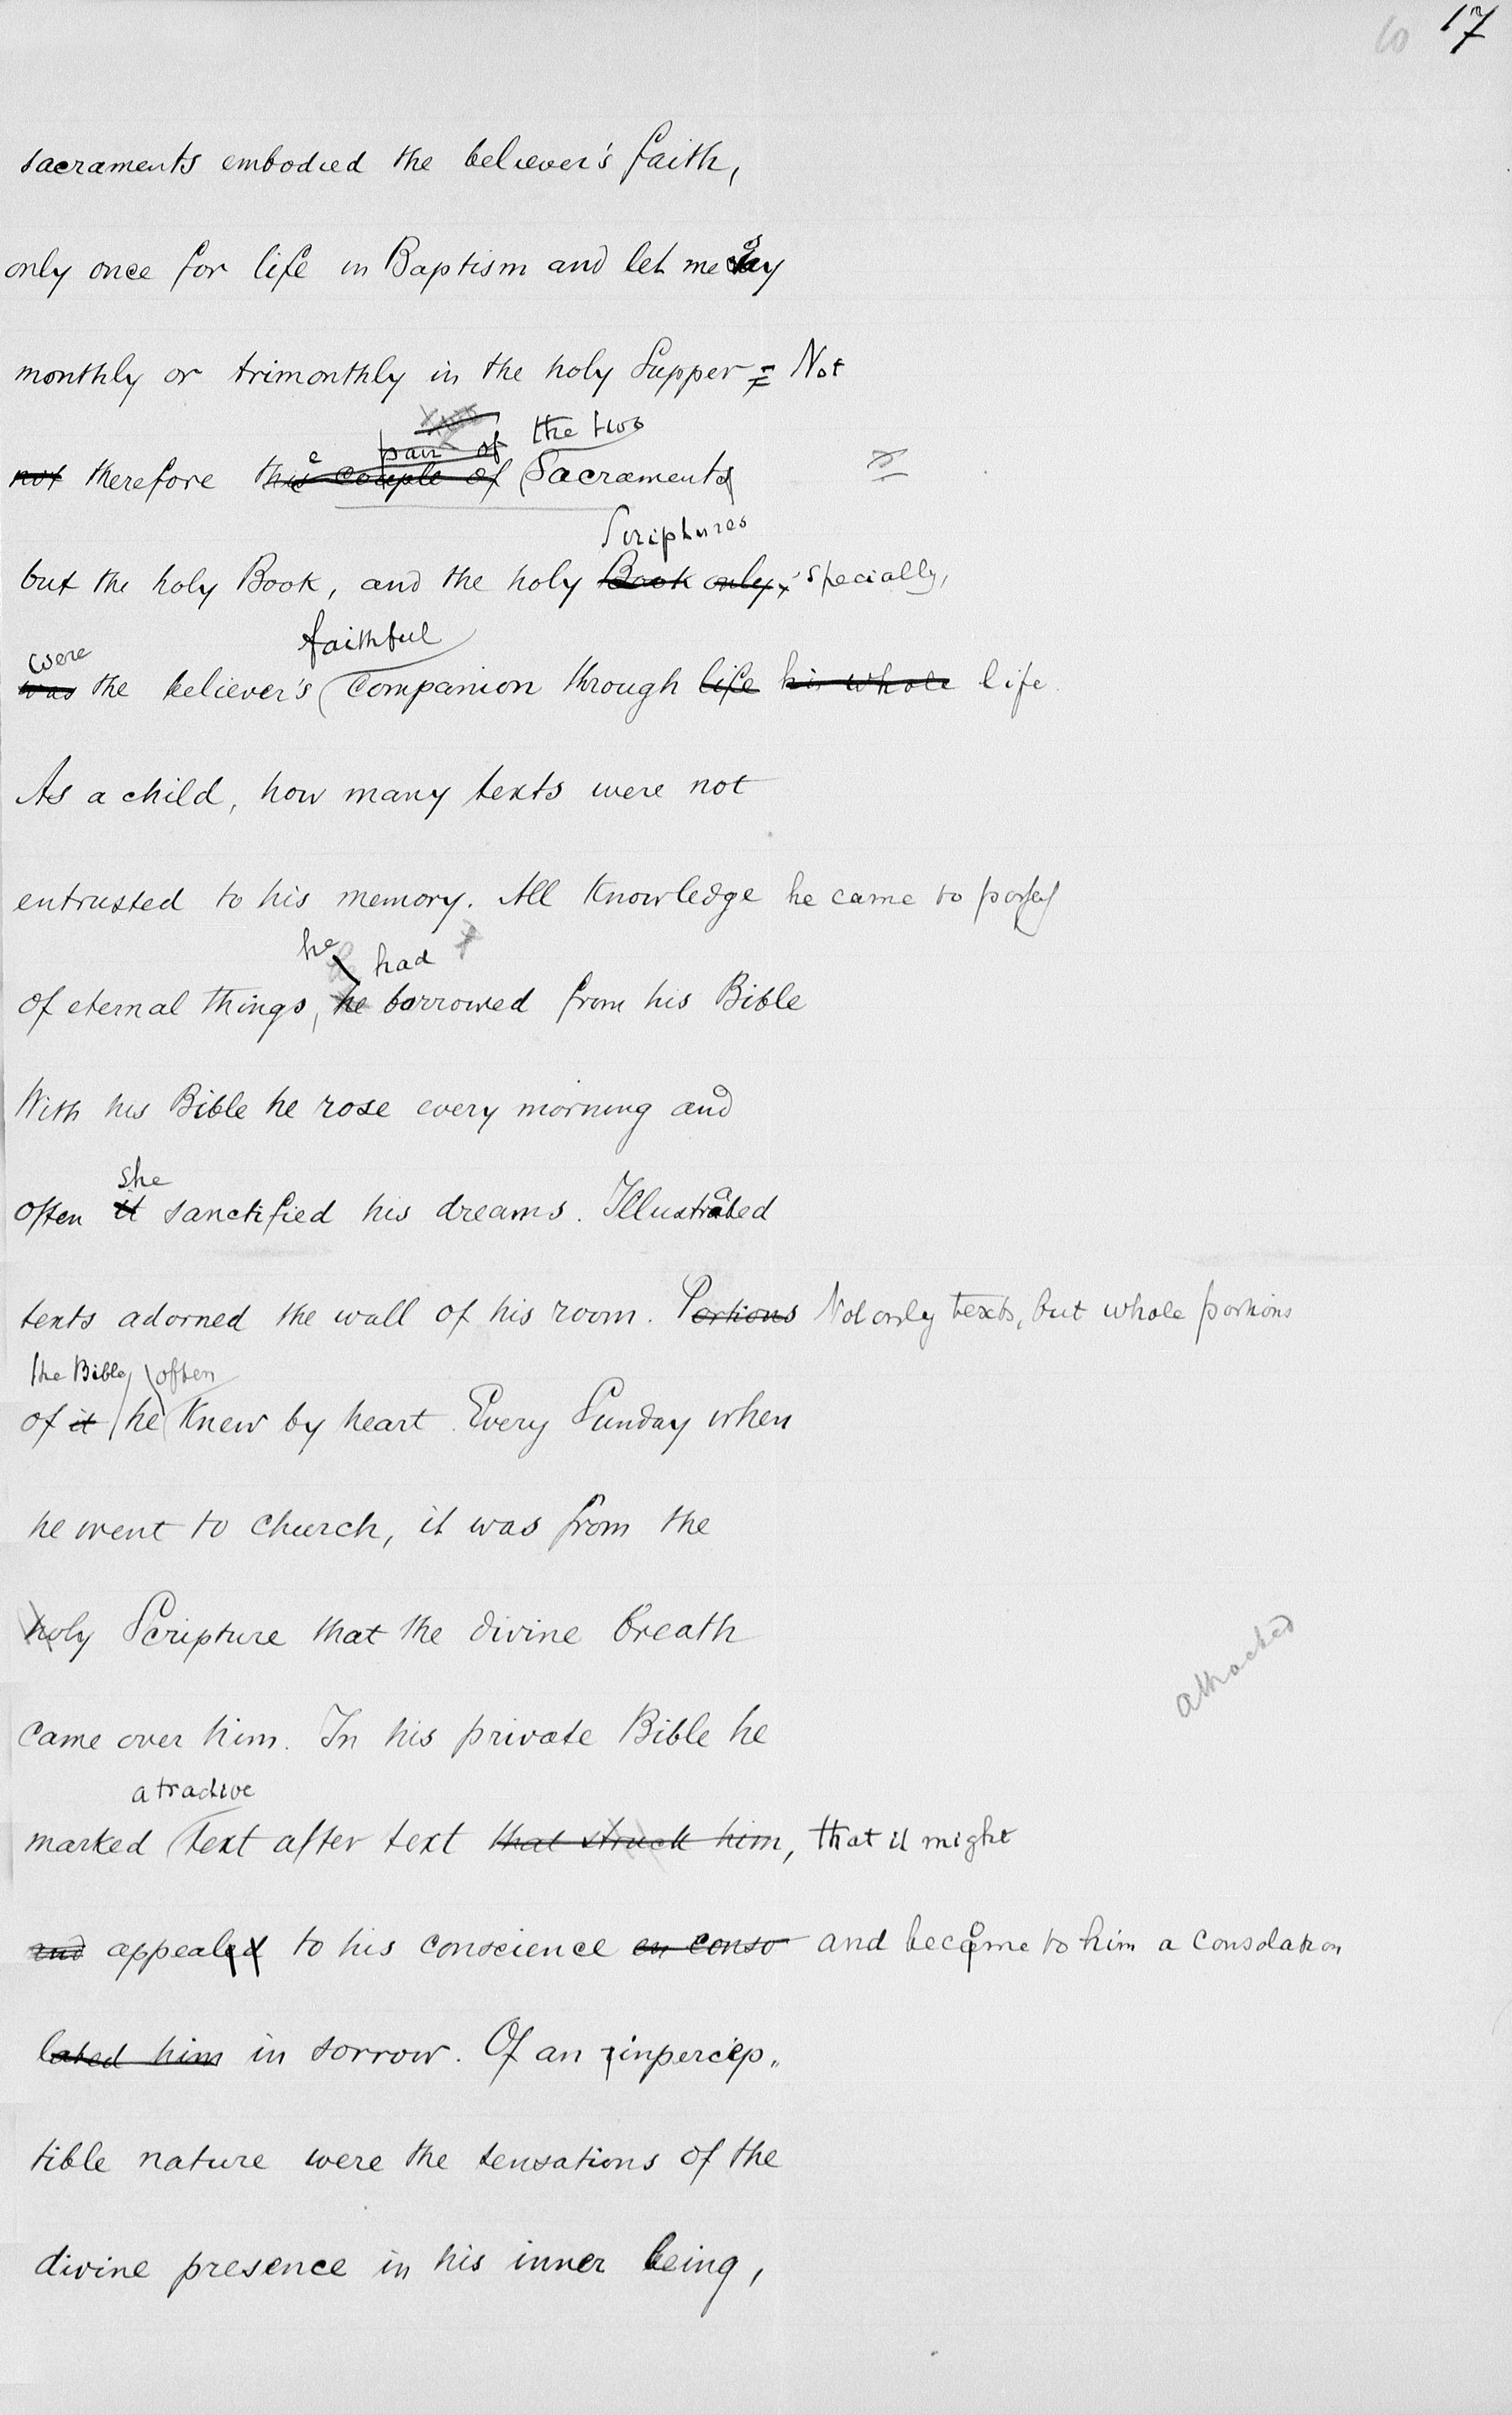 10 17
sacraments embodied the believer's faith,
only once for life in Baptism and let me say
monthly or trimonthly in the holy Supper = Not
pair of the two
not therefore this couple of Sacraments
Scriptures
but the holy Book, and the holy Book only, specially,
faithful
were
was the believer's companion through life his whole life.
As a child, how many texts were not
entrusted to his memory. All knowledge he came to
he had
of eternal things, he borrowed from his Bible
With his Bible he rose every morning and
she
often it sanctified his dreams. Illustrated
texts adorned the wall of his room. Portions Not only texts, but whole portions
the Bible often
of it he knew by heart. Every Sunday when
he went to church, it was from the
holy Scripture that the divine breath
attached
came over him. In his private Bible he
atractive
marked text after text that struck him, that it might
and appealed to his conscience en conso and become to him a consolation
lated him in sorrow. Of an inpercep„
tible nature were the sensations of the
divine presence in his inner being,